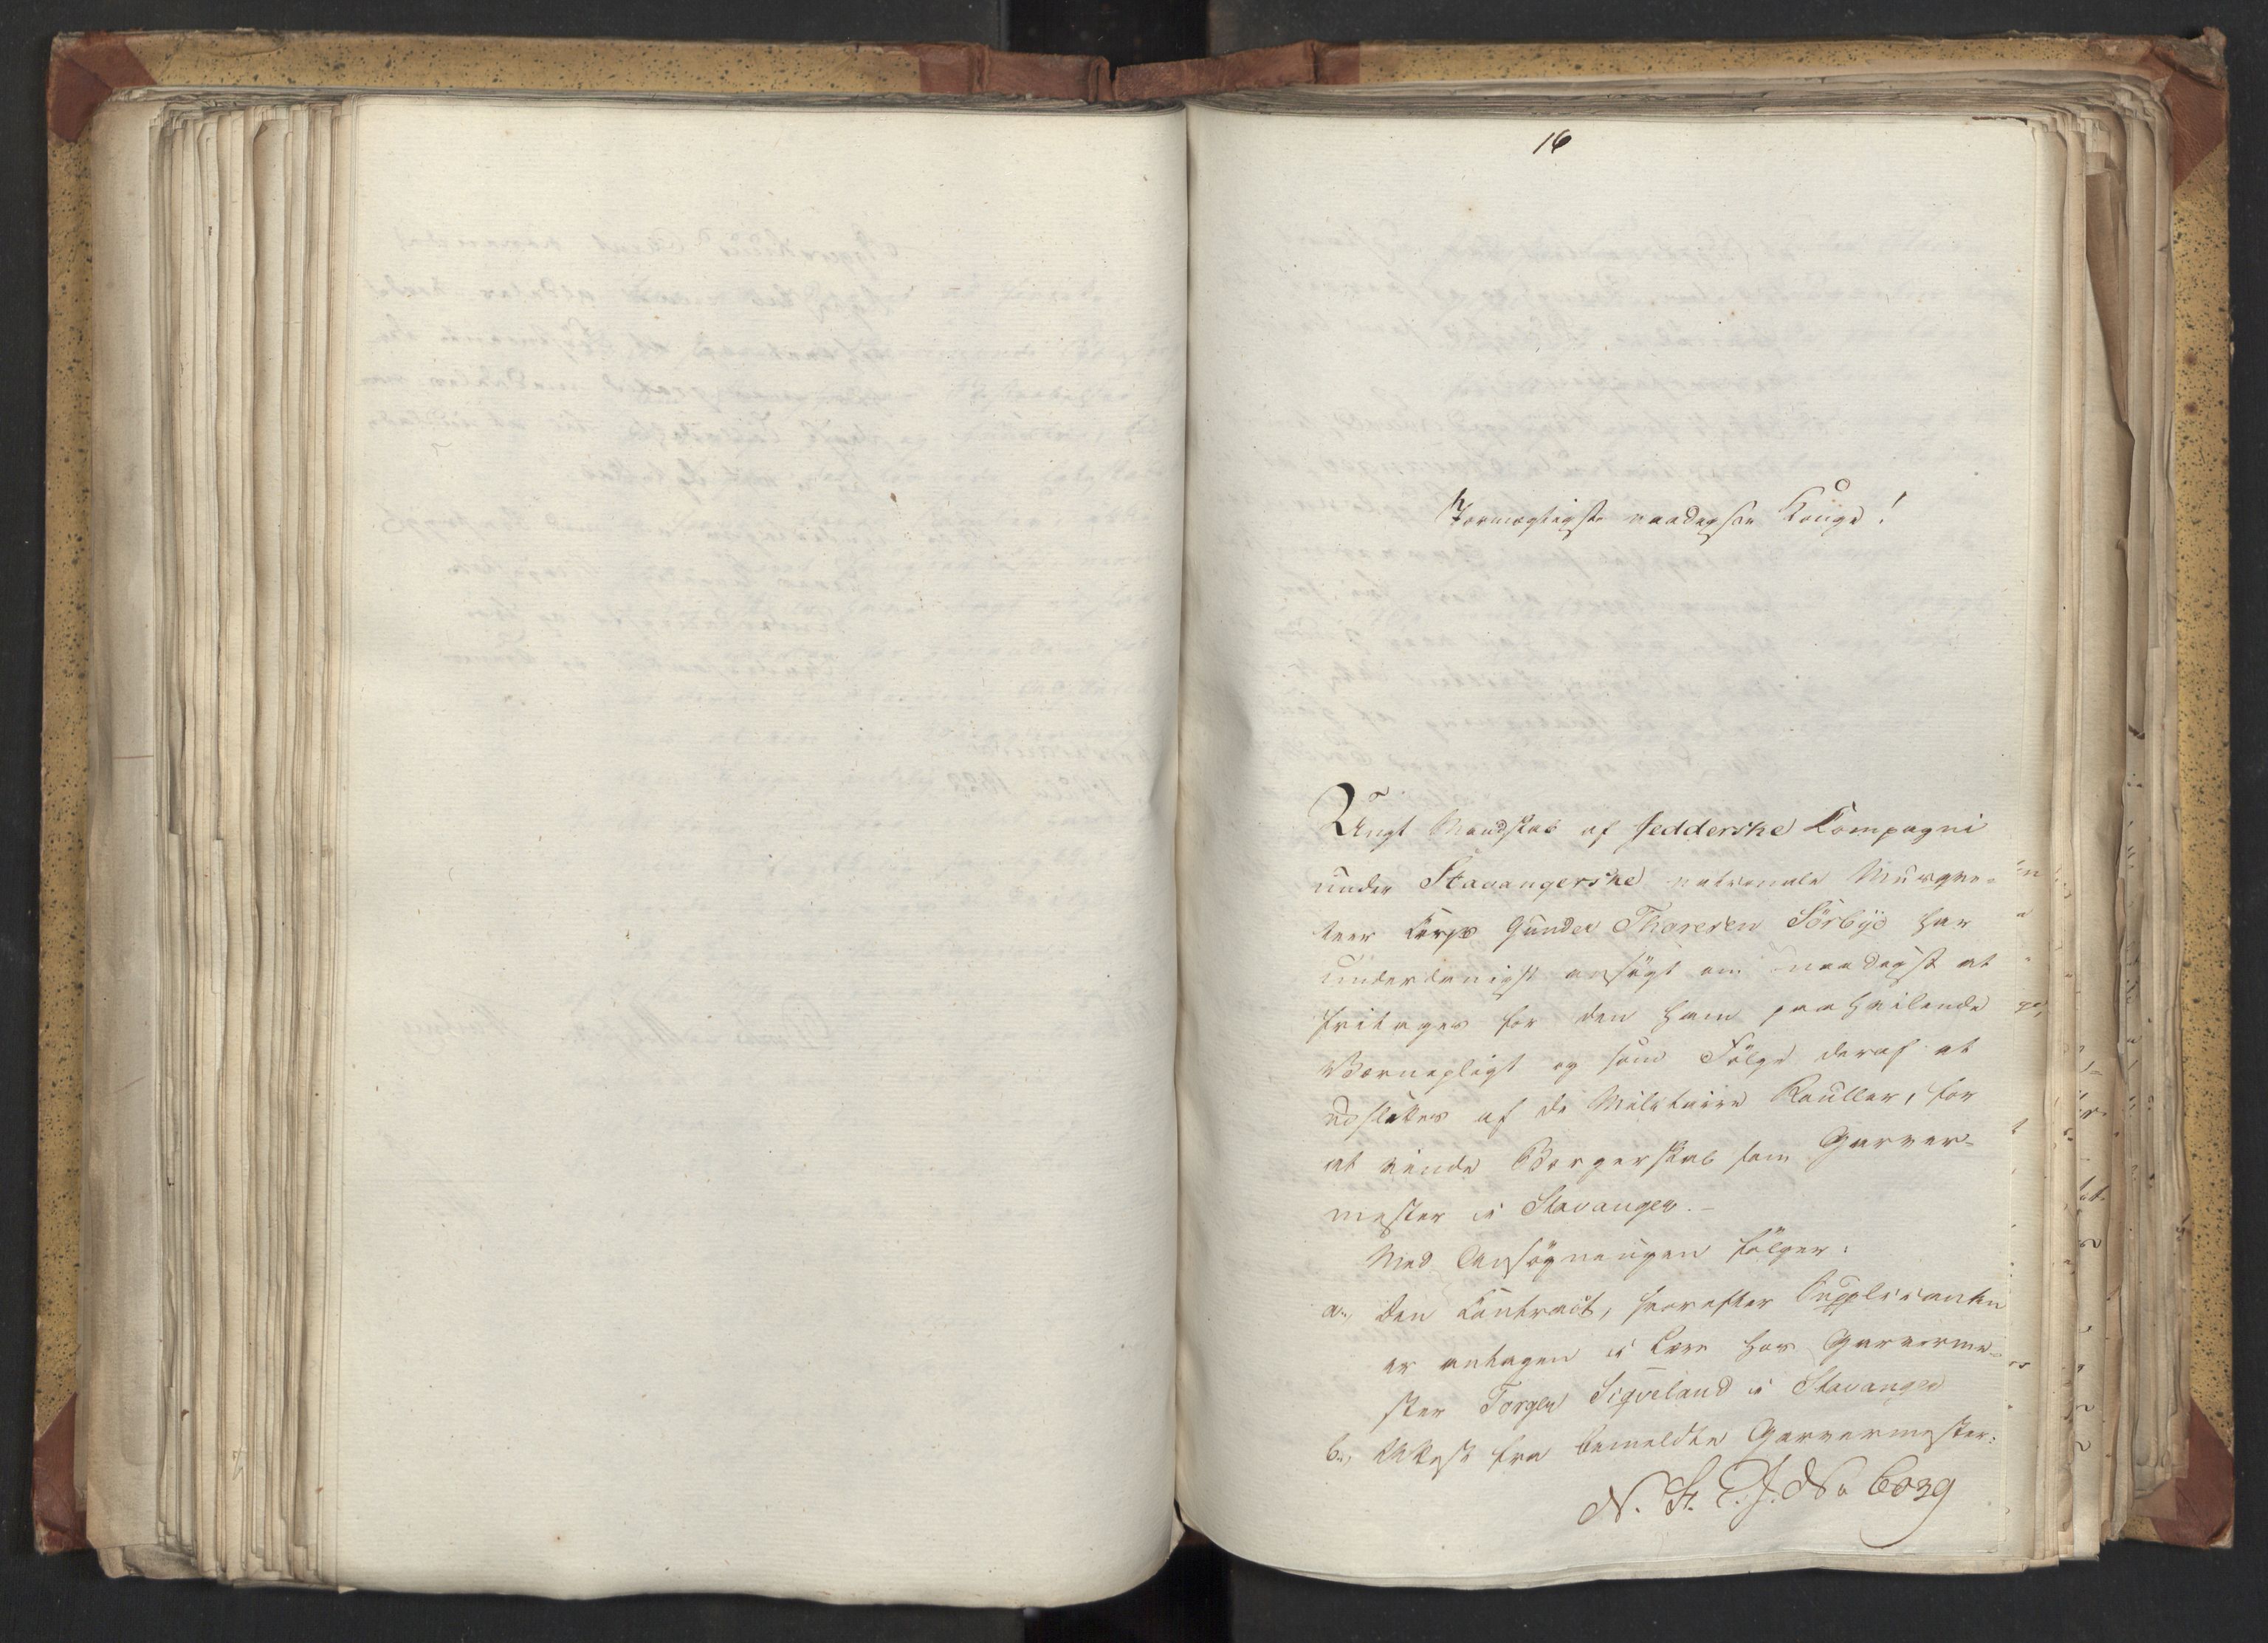 16
Stormægtigste naadigste Konge!
Ungt Mandskab af Jedderske Compagni
under Stavangerske nationale Musque-
teer Corps Gunder Thoresen Sörbÿe har
underdanigst ansögt om naadigst at
fritages for den ham paahvilende
Værnepligt og som Fölge deraf at
udslettes af de Militaire Rouller, for
at vinde Borgerskab som Garver-
mester i Stavanger. –
Med Ansögningen fölger:
a., den Contract, hvorefter Supplicanten
er antagen i Lære hos Garverme-
ster Torger Sigveland i Stavanger
b., Attest fra bemeldte Garvermester:
N. St. C. J. No 6039